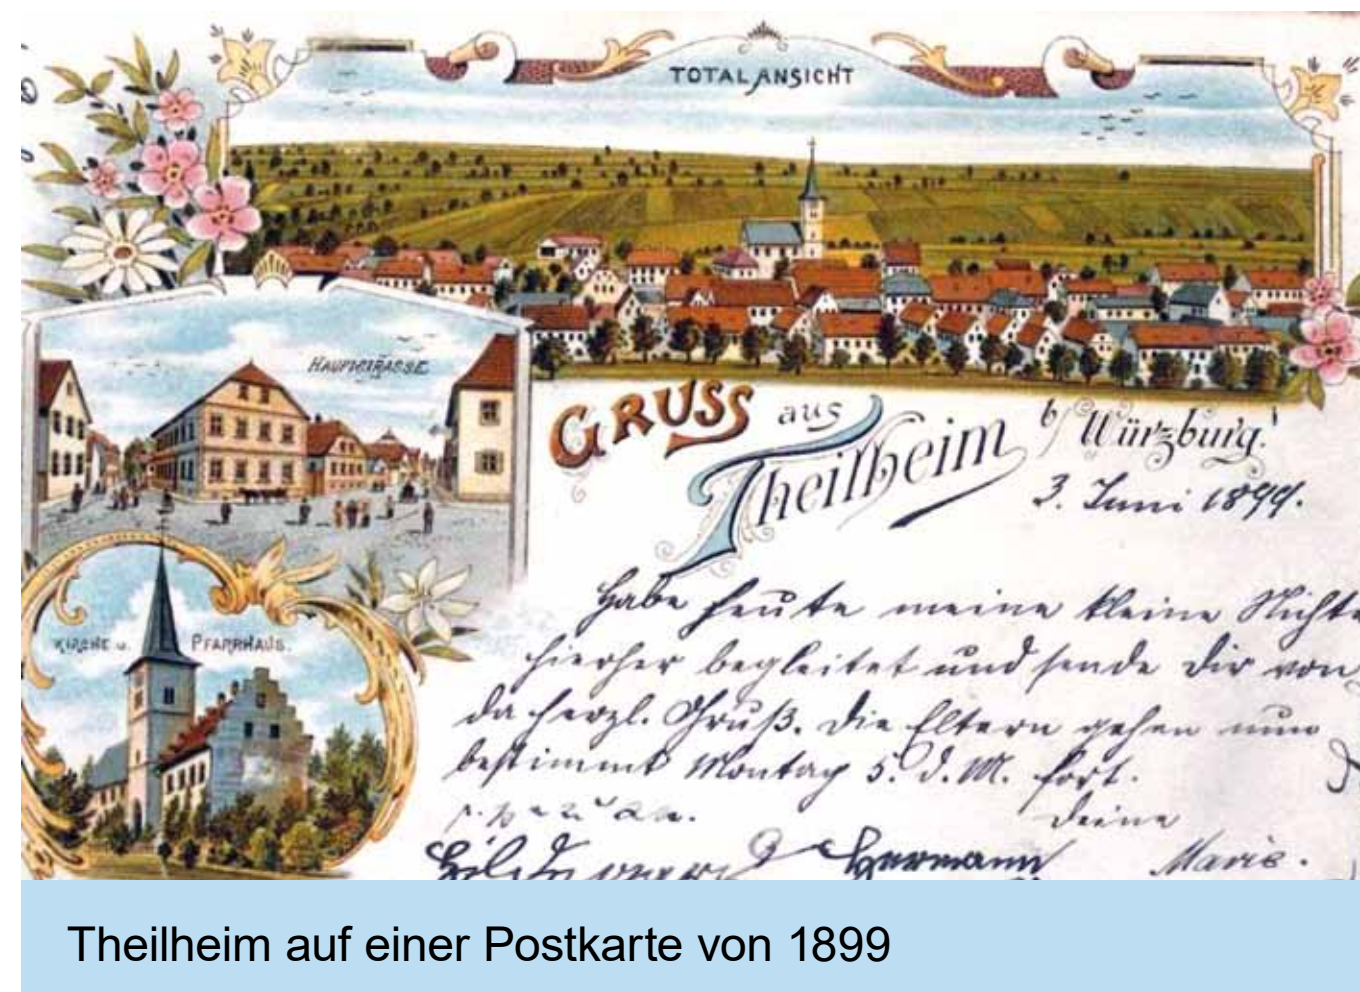 TOTALANSICHT
HAUPTSTRASSE
KIRCHE u. PFARRHAUS.
GRUSS aus
Theilheim b/ Würzburg.
3. Juni 1899.
Habe heute meine kleine Nichte
hierher begleitet und sende Dir von
da herzl. Gruß. Die Eltern gehen nun
bestimmt Montag 5. d. M. fort.
Deine
Hermann Marie.
Theilheim auf einer Postkarte von 1899